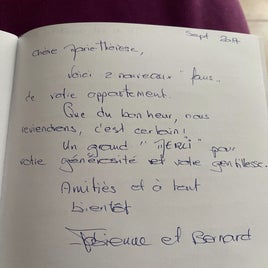 Sept 2017
Chère Marie-Thérèse,
Voici 2 nouveaux "fans"
de votre appartement.
Que du bonheur, nous
reviendrons, c'est certain!
Un grand "MERCI" pour
votre générosité et votre gentillesse.
Amitiés et à tout
bientôt
Fabienne et Bernard